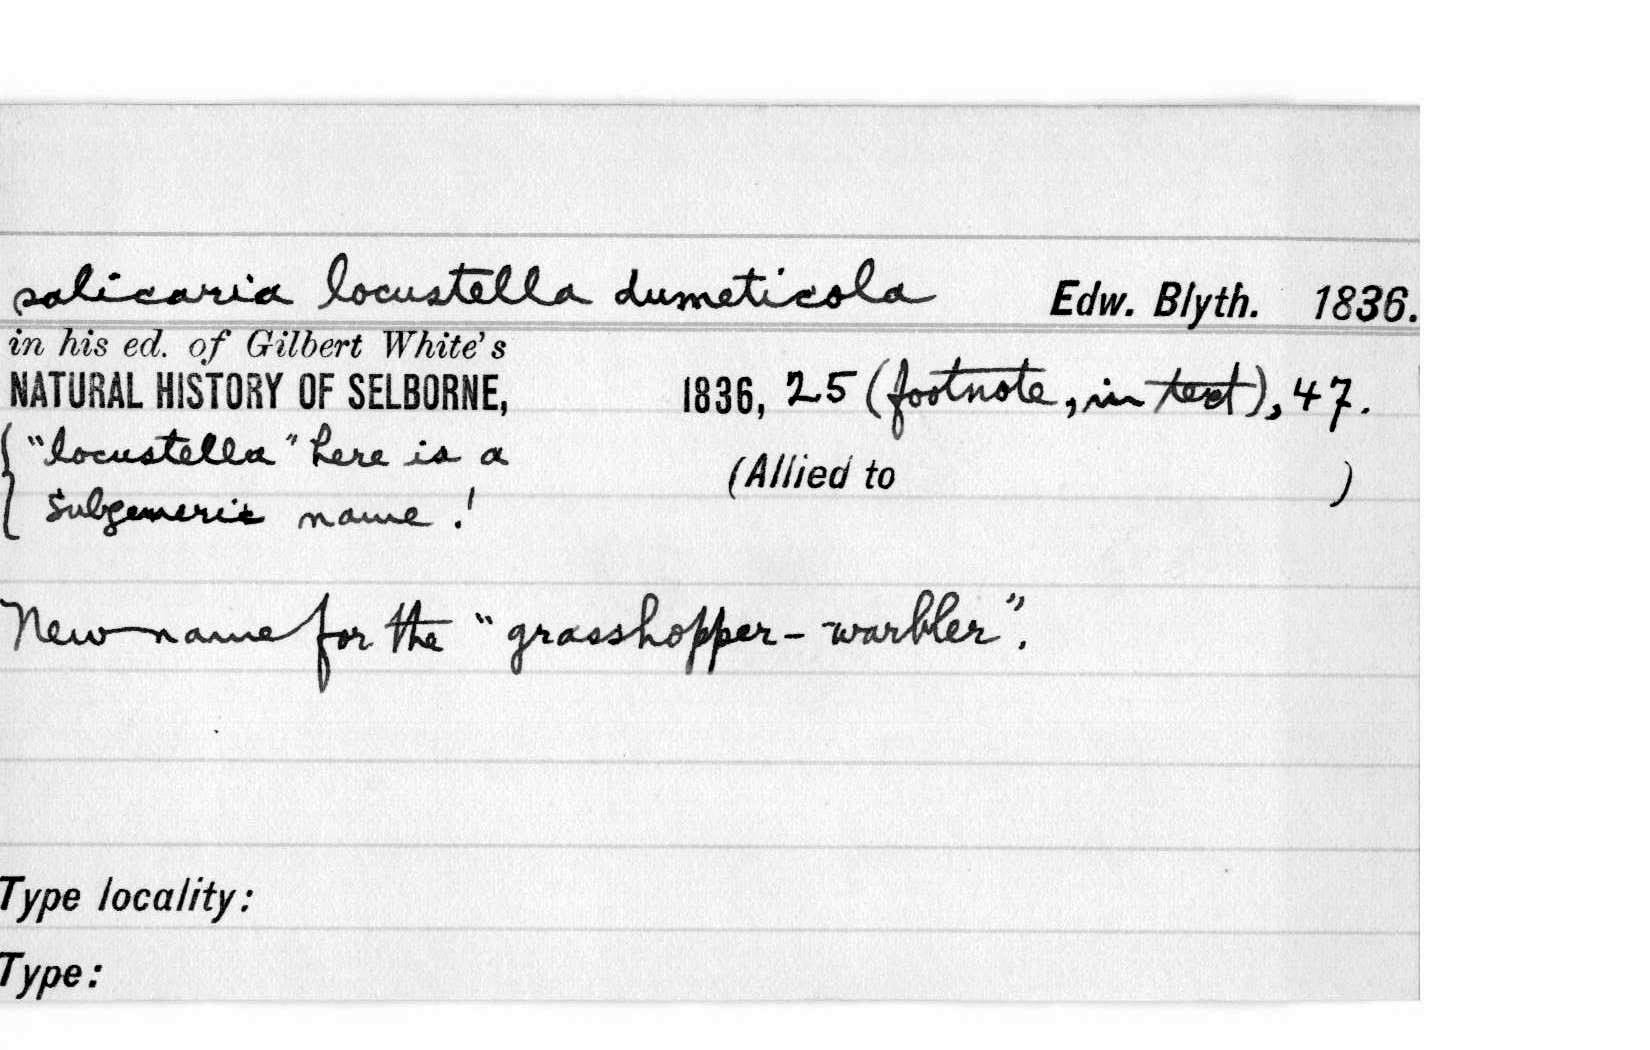 salicaria locustella dumeticola Edw. Blyth. 1836.
in his ed. of Gilbert White's
NATURAL HISTORY OF SELBORNE, 1836, 25 (footnote, in text), 47.
"locustella" here is a (Allied to )
subgeneric name.!
New name for the "grasshopper-warbler".
Type locality:
Type: